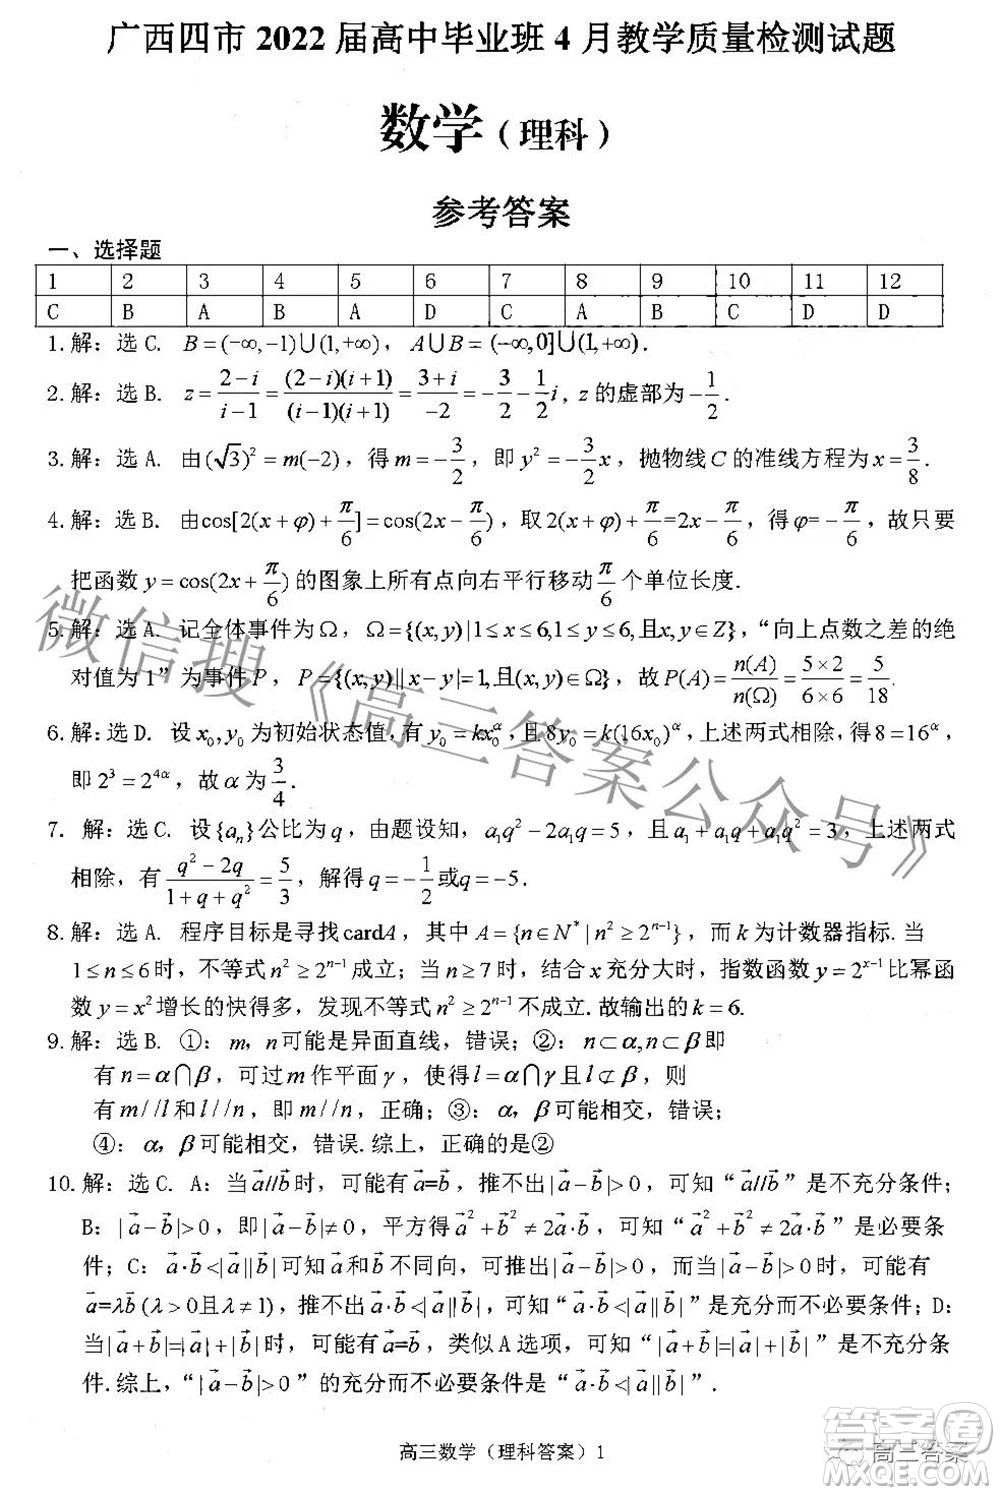 广西四市 2022 届高中毕业班 4 月教学质量检测试题
数学（理科）
参考答案
一、选择题
1 2 3 4 5 6 7 8 9 10 11 12
C B A B A D C A B C D D
1.解：选C. B=(-∞,-1)∪(1,+∞)，A∪B=(-∞,0]∪(1,+∞).
2.解：选B. z=\frac{2-i}{i-1}=\frac{(2-i)(i+1)}{(i-1)(i+1)}=\frac{3+i}{-2}=-\frac{3}{2}-\frac{1}{2}i, z的虚部为-\frac{1}{2}.
3.解：选A. 由(\sqrt{3})^2=m(-2)，得m=-\frac{3}{2}，即y^2=-\frac{3}{2}x，抛物线C的准线方程为x=\frac{3}{8}.
4.解：选B. 由cos[2(x+φ)+\frac{π}{6}]=cos(2x-\frac{π}{6})，取2(x+φ)+\frac{π}{6}=2x-\frac{π}{6}，得φ=-\frac{π}{6}，故只要
把函数y=cos(2x+\frac{π}{6})的图象上所有点向右平行移动\frac{π}{6}个单位长度.
5.解：选A. 记全体事件为Ω，Ω={(x,y)|1≤x≤6,1≤y≤6,且x,y∈Z}，“向上点数之差的绝
对值为1”为事件P，P={(x,y)||x-y|=1,且(x,y)∈Ω}，故P(A)=\frac{n(A)}{n(Ω)}=\frac{5×2}{6×6}=\frac{5}{18}.
6.解：选D. 设x_0,y_0为初始状态值,有y_0=kx_0^α，且8y_0=k(16x_0)^α，上述两式相除,得8=16^α，
即2^3=2^{4α}，故α为\frac{3}{4}.
7. 解：选C. 设{a_n}公比为q，由题设知，a_1q^2-2a_1q=5，且a_1+a_1q+a_1q^2=3，上述两式
相除，有\frac{q^2-2q}{1+q+q^2}=\frac{5}{3}，解得q=-\frac{1}{2}或q=-5.
8.解：选A. 程序目标是寻找cardA，其中A={n∈N^*|n^2≥2^{n-1}}，而k为计数器指标.当
1≤n≤6时，不等式n^2≥2^{n-1}成立；当n≥7时，结合x充分大时，指数函数y=2^{x-1}比幂函
数y=x^2增长的快得多，发现不等式n^2≥2^{n-1}不成立.故输出的k=6.
9.解：选B. ①：m，n可能是异面直线，错误；②：n⊂α,n⊂β即
有n=α∩β，可过m作平面γ，使得l=α∩γ且l⊄β，则
有m//l和l//n，即m//n，正确；③：α，β可能相交，错误；
④：α，β可能相交，错误.综上，正确的是②
10.解：选C. A：当\vec{a}//\vec{b}时，可能有\vec{a}=\vec{b}，推不出|\vec{a}-\vec{b}|>0，可知“\vec{a}//\vec{b}”是不充分条件；
B：|\vec{a}-\vec{b}|>0，即|\vec{a}-\vec{b}|≠0，平方得\vec{a}^2+\vec{b}^2≠2\vec{a}·\vec{b}，可知“\vec{a}^2+\vec{b}^2≠2\vec{a}·\vec{b}”是必要条
件；C：\vec{a}·\vec{b}<|\vec{a}||\vec{b}|可知\vec{a}和\vec{b}不同向，推出|\vec{a}-\vec{b}|>0，而|\vec{a}-\vec{b}|>0，可能有
\vec{a}=λ\vec{b}(λ>0且λ≠1)，推不出\vec{a}·\vec{b}<|\vec{a}||\vec{b}|，故“\vec{a}·\vec{b}<|\vec{a}||\vec{b}|”是充分而不必要条件；D：
当|\vec{a}+\vec{b}|=|\vec{a}|+|\vec{b}|时，可能有\vec{a}=\vec{b}，类似A选项，可知“|\vec{a}+\vec{b}|=|\vec{a}|+|\vec{b}|”是不充分条
件.综上，“|\vec{a}-\vec{b}|>0”的充分而不必要条件是“\vec{a}·\vec{b}<|\vec{a}||\vec{b}|”.
高三数学（理科答案）1
微信搜《高三答案公众号》
高三答案
答案圈
MXQE.COM